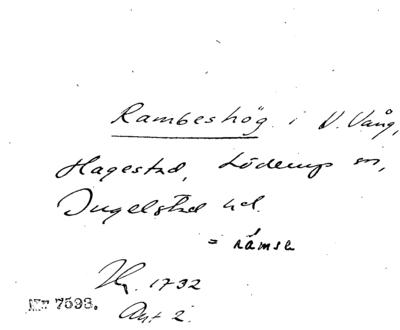 Rambeshög i N. Vång,
Hagestad, Löderup sn,
Ingelstad hd.
= rämse
Hg. 1732
Akt 2.
7593.